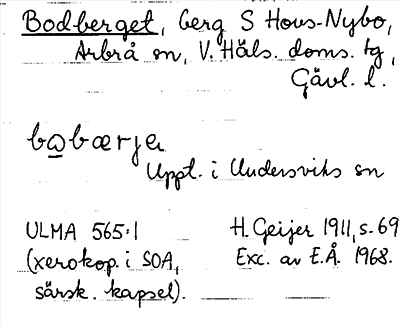 Bodberget, berg S Hovs-Nybo,
Arbrå sn, V. Häls. doms. tg,
Gävl. l.
bo̲bærja
Uppt. i Undersviks sn
ULMA 565:1
(xerokop. i SOA,
särsk. kapsel).
H. Geijer 1911, s. 69
Exc. av E.Å. 1968.